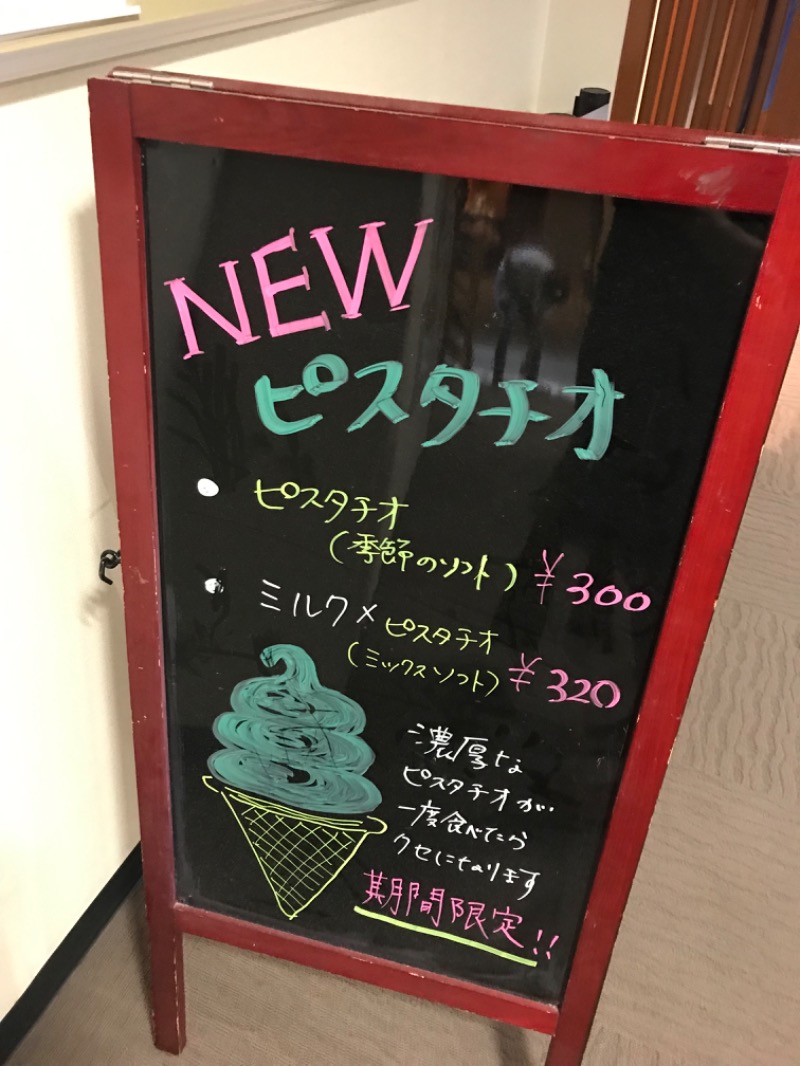 NEW
ピスタチオ
ピスタチオ
(季節のソフト) ¥300
ミルク×ピスタチオ
(ミックスソフト) ¥320
濃厚な
ピスタチオが
一度食べたら
クセになります
期間限定!!